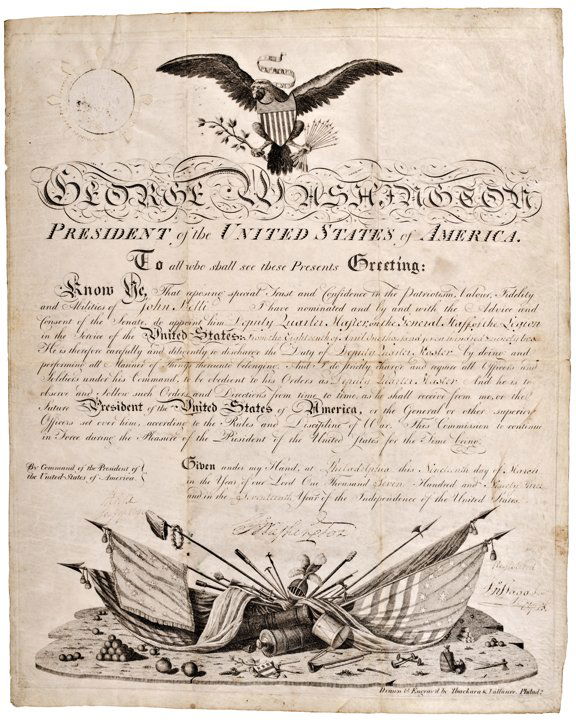 GEORGE WASHINGTON
PRESIDENT of the UNITED STATES of AMERICA.
To all who shall see these Presents Greeting:
Know Ye, That reposing special Trust and Confidence in the Patriotism, Valour, Fidelity
and Abilities of John I have nominated and by and with the Advice and
Consent of the Senate do appoint him Deputy Quarter Master in the General Staff of the Legion
in the Service of the United States: from the Eighteenth of April One thousand seven hundred ninety two
He is therefore carefully and diligently to discharge the Duty of Deputy Quarter Master by doing and
performing all Manner of Things thereunto belonging. And I do strictly charge and require all Officers and
Soldiers under his Command, to be obedient to his Orders as Deputy Quarter Master And he is to
observe and follow such Orders and Directions from time to time, as he shall receive from me, or the
future President of the United States of America, or the General or other superior
Officers set over him, according to the Rules and Discipline of War. This Commission to continue
in Force during the Pleasure of the President of the United States for the Time being.
By Command of the President of
the United States of America.
Given under my Hand, at Philadelphia this Nineteenth day of March
in the Year of our Lord One Thousand Seven Hundred and Ninety three
and in the Seventeenth Year of the Independence of the United States.
G Washington
Drawn & Engrav'd by Thackara & Vallance. Philad.